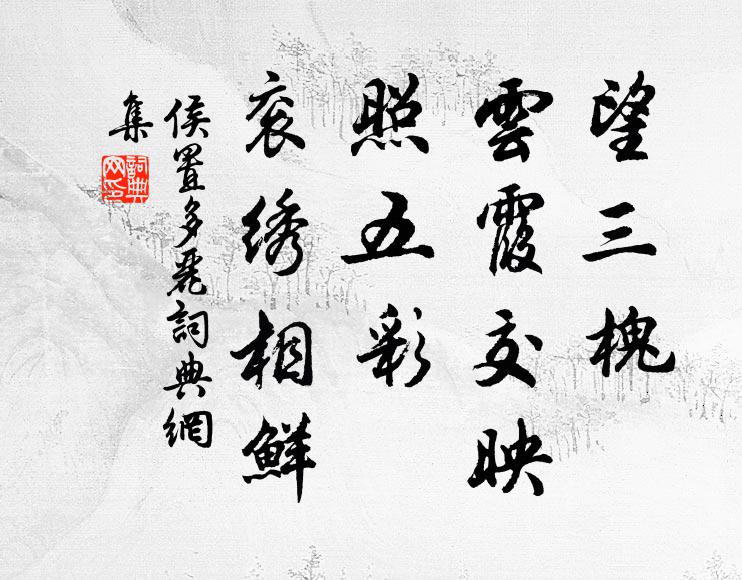 望三槐
雲霞交映
照五彩
衮绣相鮮
侯置多麗詞典網
集
詞典网印